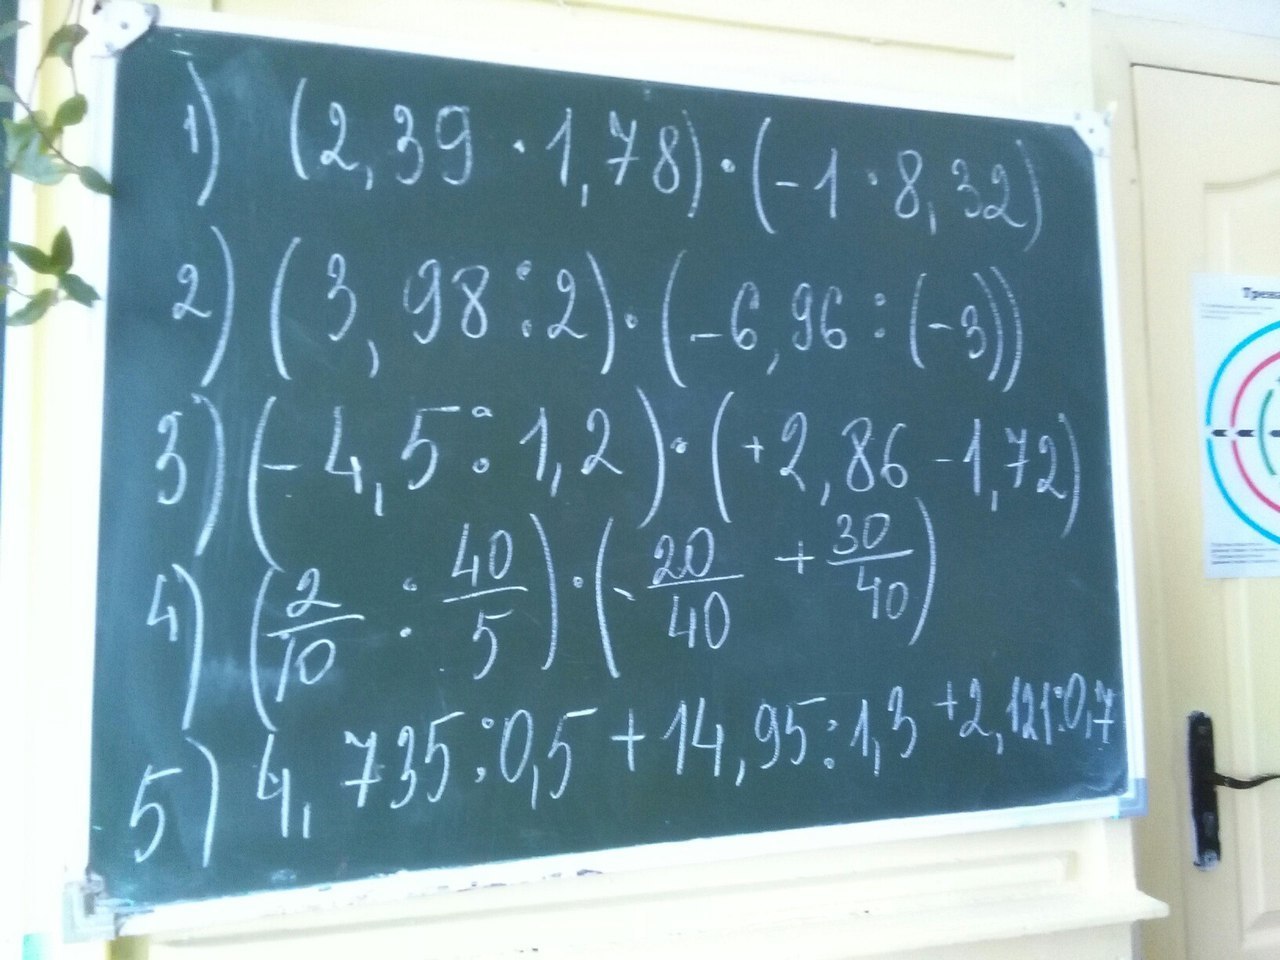 1) (2,39 · 1,78) · (-1 · 8,32)
2) (3,98 : 2) · (-6,96 : (-3))
3) (-4,5 : 1,2) · (+2,86 - 1,72)
4) (2/10 : 40/5) · (-20/40 + 30/40)
5) 4,735 : 0,5 + 14,95 : 1,3 + 2,121 : 0,7